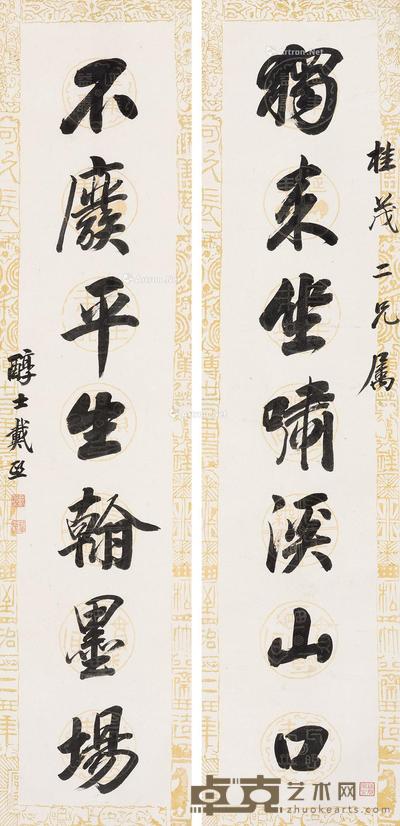 桂茂二兄属
獨來坐嘯溪山口
不廢平生翰墨場
醇士戴熙
Artron.Net
卓克艺术网
zhuokearts.com